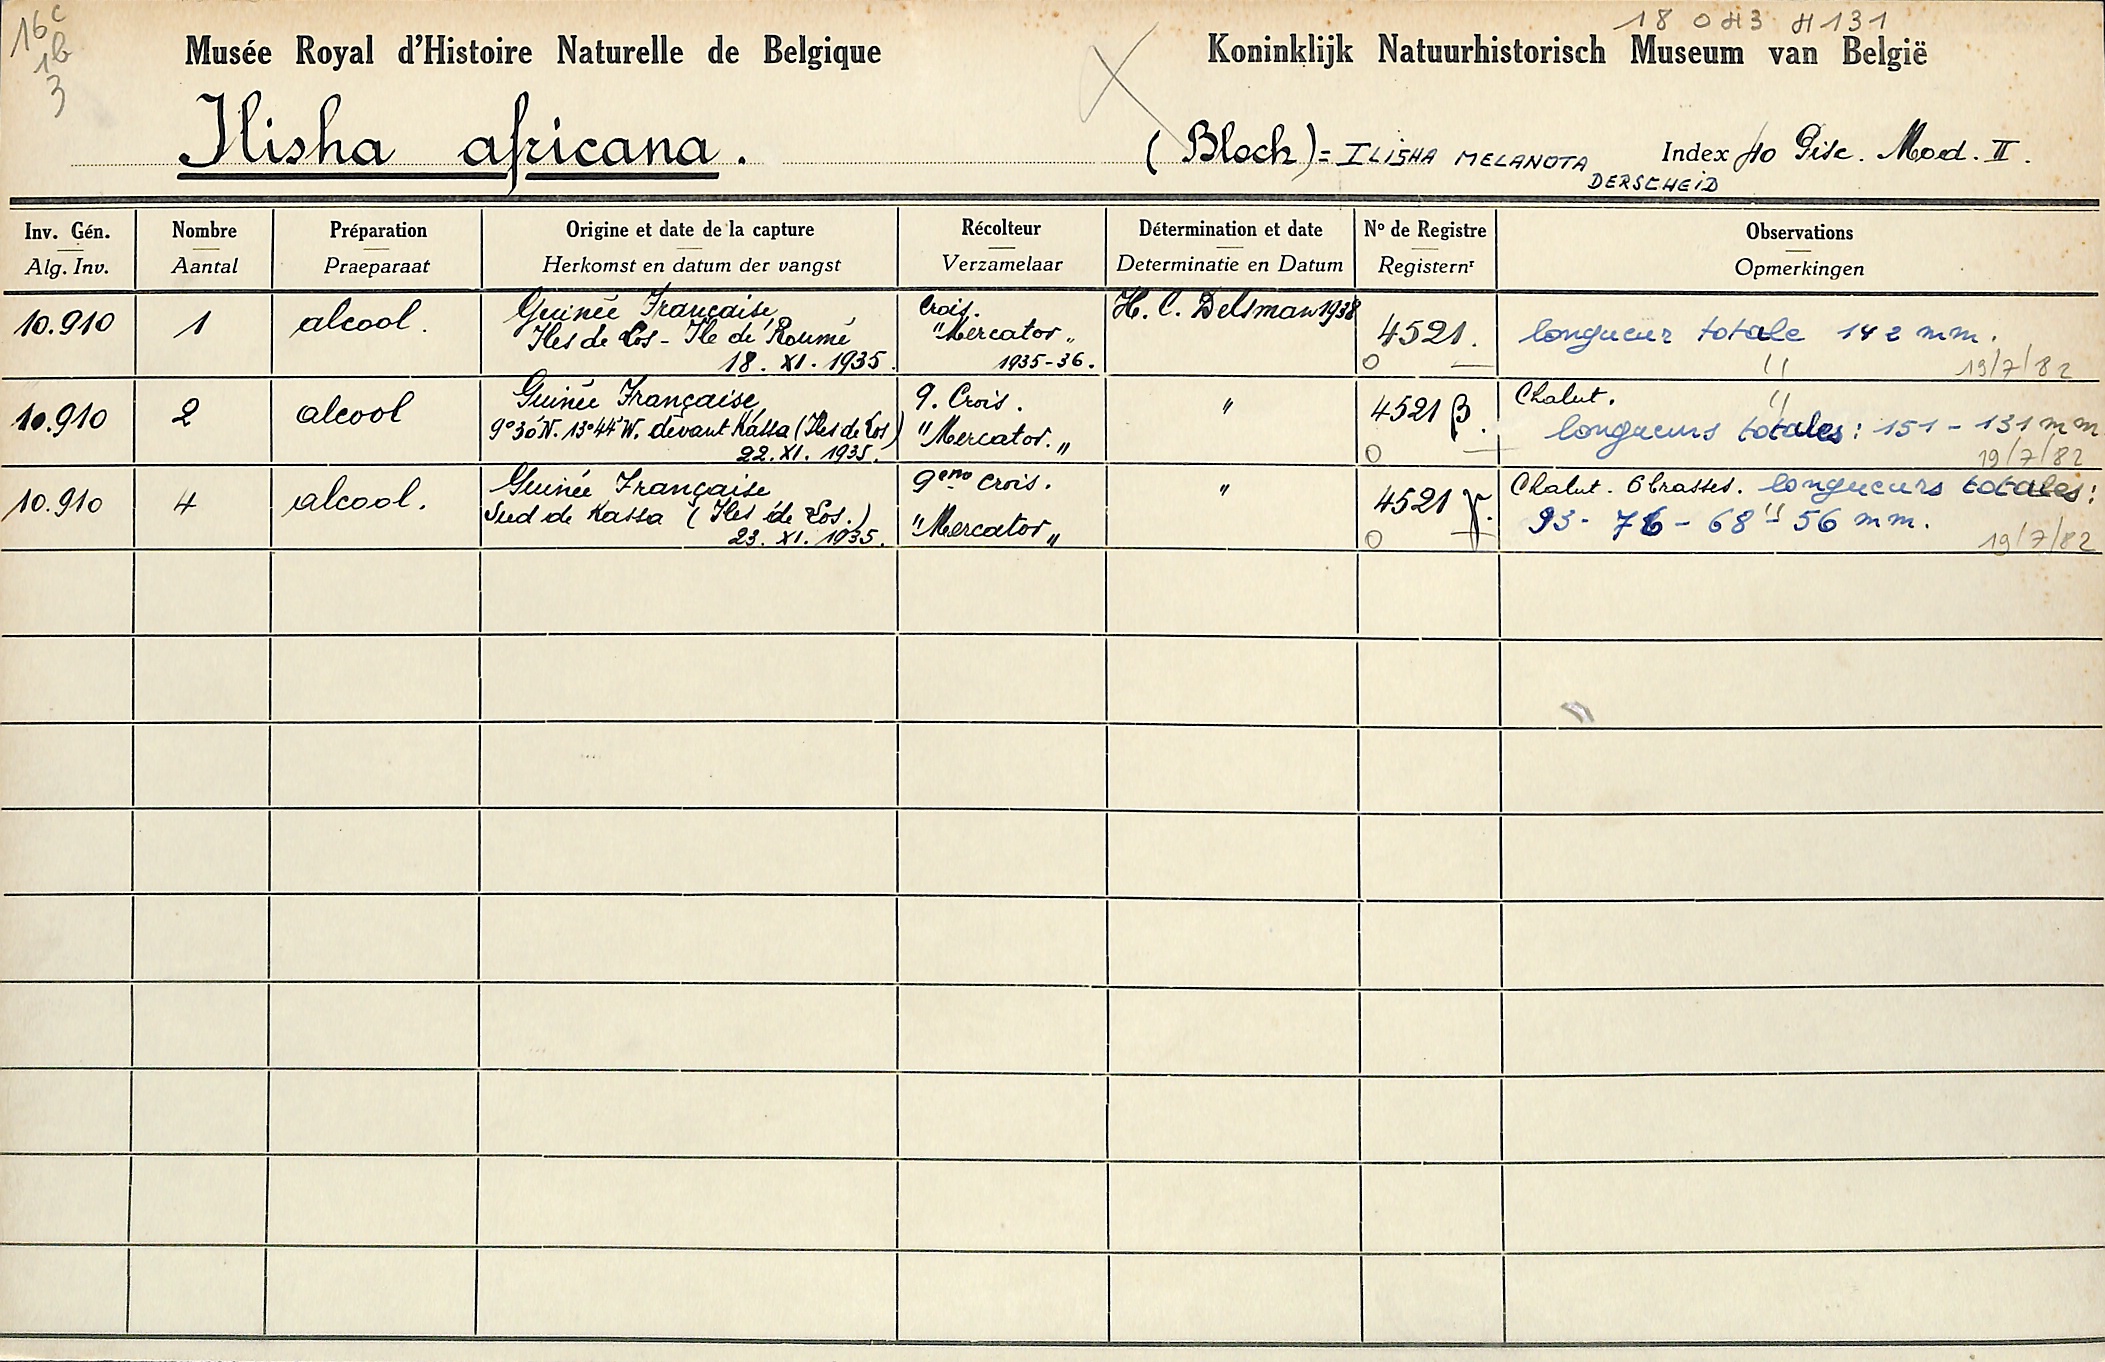 16c
1b
3
18 043 4131
Musée Royal d'Histoire Naturelle de Belgique
Koninklijk Natuurhistorisch Museum van België
Ilisha africana.
(Bloch) = ILISHA MELANOTA DERSCHEID
Index 40 Pisc. Moed. II.
Inv. Gén. Nombre Préparation Origine et date de la capture Récolteur Détermination et date N° de Registre Observations
Alg. Inv. Aantal Praeparaat Herkomst en datum der vangst Verzamelaar Determinatie en Datum Registernr Opmerkingen
10.910 1 alcool.
Guinée Française
Iles de Los - Ile de Roumé
18. XI. 1935.
Crois.
"Mercator"
1935-36.
H. C. Delsman 1938
4521.
0 —
longueur totale 142 mm.
"
19/7/82
10.910 2 alcool
Guinée Française
9°30'N. 13°44'W. devant Kassa (Iles de Los)
22. XI. 1935.
9. Crois.
"Mercator."
"
4521 β.
0 —
Chalut. "
longueurs totales: 151 - 131 mm
19/7/82
10.910 4 alcool.
Guinée Française
Sud de Kassa (Iles de Los.)
23. XI. 1935.
9eme crois.
"Mercator"
"
4521 γ.
0 —
Chalut. 6 brasses. longueurs totales:
"
93 - 76 - 68 - 56 mm.
19/7/82